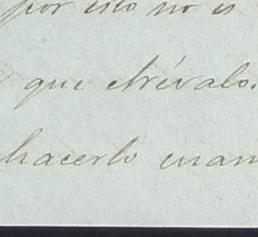 por esto no es
que atrévalo.
hacerlo cuan